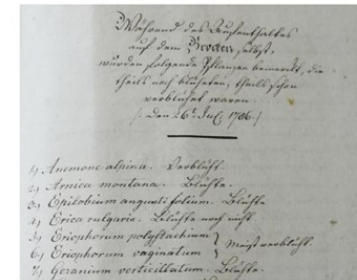 Während des Aufenthaltes
auf dem Brocken selbst.
wurden folgende Pflanzen bemerkt, die
theils noch blüheten, theils schon
verblühet waren
/: den 26t. July 1786. :/
1, Anemone alpina. Verblüht.
2, Arnica montana. Blühte.
3, Epilobium angustifolium. Blühte
4, Erica vulgaris. Blühte noch nicht.
5, Eriophorum polystachium } Meist verblüht.
6, Eriophorum vaginatum
7, Geranium Blühte.